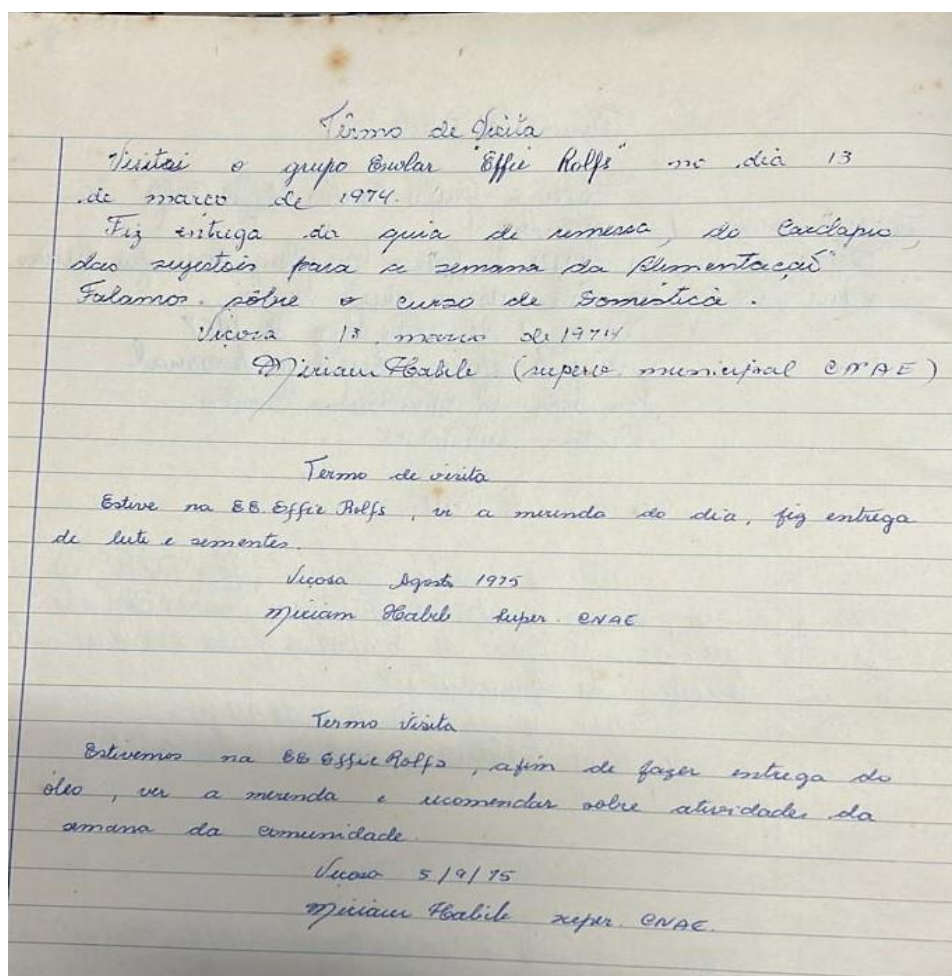 Têrmo de Visita
Visitei o grupo Escolar "Effie Rolfs" no dia 13
de março de 1974.
Fiz entrega da guia de remessa, do Cardapio,
das sujestois para a "semana da Alimentação"
Falamos sôbre o curso de Doméstica.
Viçosa 13, março de 1974
Miriam Habib (superv. municipal CNAE)
Termo de visita
Estive na EE Effie Rolfs, vi a merenda do dia, fiz entrega
de leite e sementes.
Viçosa Agosto 1975
Miriam Habib super. CNAE
Termo Visita
Estivemos na EE Effie Rolfs, afim de fazer entrega do
óleo, ver a merenda e recomendar sobre atividades da
semana da comunidade.
Viçosa 5/9/75
Miriam Habib super. CNAE.